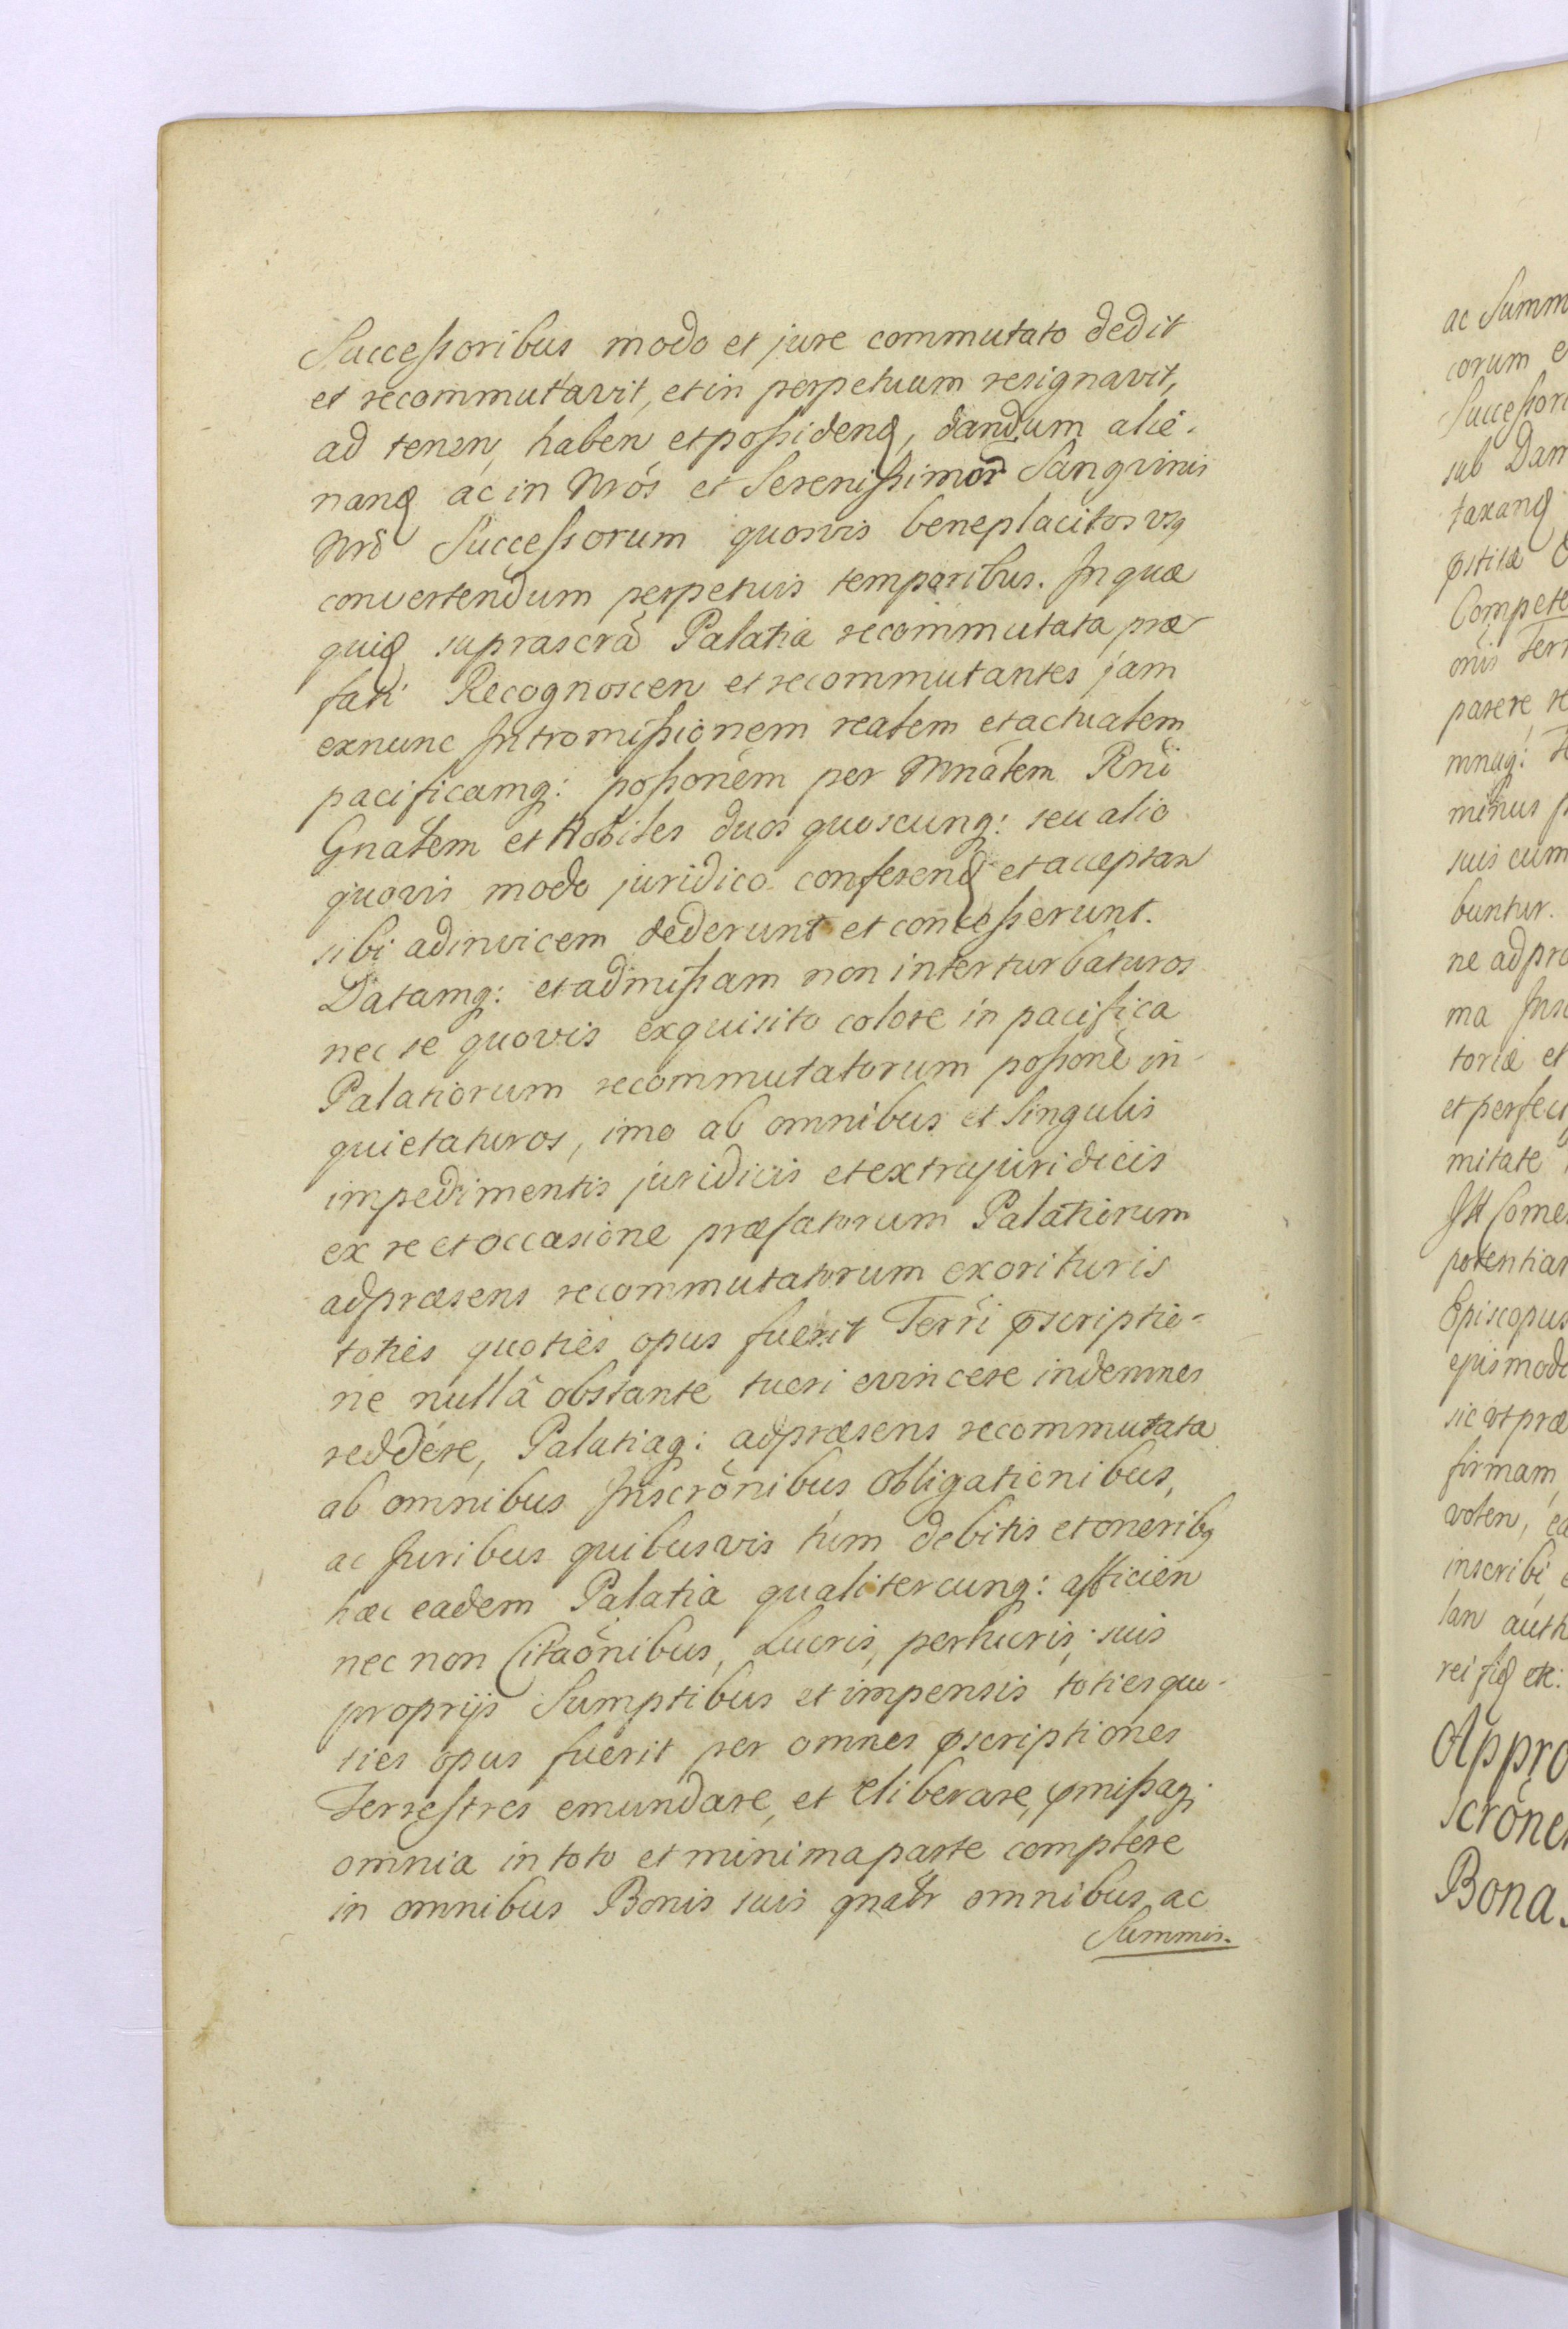 Successoribus modo et jure commutato dedit
et recommutavit, et in perpetuum resignavit,
ad tenen, haben et possidend, dandum alie-
nand ac in Nrós et Serenissimor Sangvinis
Nrõ Successorum quosvis beneplacitos usq
convertendum perpetuis temporibus. In quæ
quid suprascrã Palatia recommutata, præ
fati Recognoscen et recommutantes jam
exnunc Intromissionem realem et actualem
pacificamq: possonem per Mnãlem Rni
Gnãlem et Nobiles duos quoscunq: seu alio
quovis modo juridico conferend et acceptan
sibi adinvicem dederunt et concesserunt.
Datamq: et admissam non interturbaturos
nec se quovis exquisito colore in pacifica
Palatiorum recommutatorum possonẽ in-
quietaturos, imo ab omnibus et Singulis
impedimentis juridicis et extrajuridicis
ex re et occasione præfatorum Palatiorum
adpræsens recommutatorum exorituris
toties quoties opus fuerit Terrĩ pscriptio-
ne nullâ obstante tueri evincere indemnes
reddere, Palatiaq: adpræsens recommutata
ab omnibus Inscrõnibus Obligationibus,
ac Juribus quibusvis tum debitis et oneribq
hæc eadem Palatia qualitercunq: afficien
nec non Citaõnibus, Lucris, perlucris, suis
proprijs Sumptibus et impensis toties quo-
ties opus fuerit per omnes pscriptiones
Terrestres emundare, et eliberare, pmissaq:
omnia in toto et minima parte complere
in omnibus Bonis suis gnalr omnibus, ac
Summis.
ac Summ
corum e
Successori
sub Dam
taxand
pstitæ
Compete
onis Terr
parere, re
mnaq:
minus
suis cum
buntur.
ne ad pro
ma Insc
toriæ et
et perfec
mitate
potentiar
Episcopus
ejusmode
sic ut præ
firmam,
volen, ea
inscribi
lan auth
rei fid etc:
Appro
scrõne
Bona.